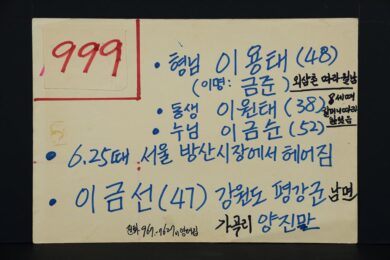 999
• 형님 이용태 (48)
(이명: 금준) 외삼촌 따라 월남
• 동생 이원태 (38) 8세때
할머니따라
• 누님 이금순 (52)
• 6.25때 서울 방산시장에서 헤어짐
• 이금선 (47) 강원도 평강군 남면
가곡리 양진말